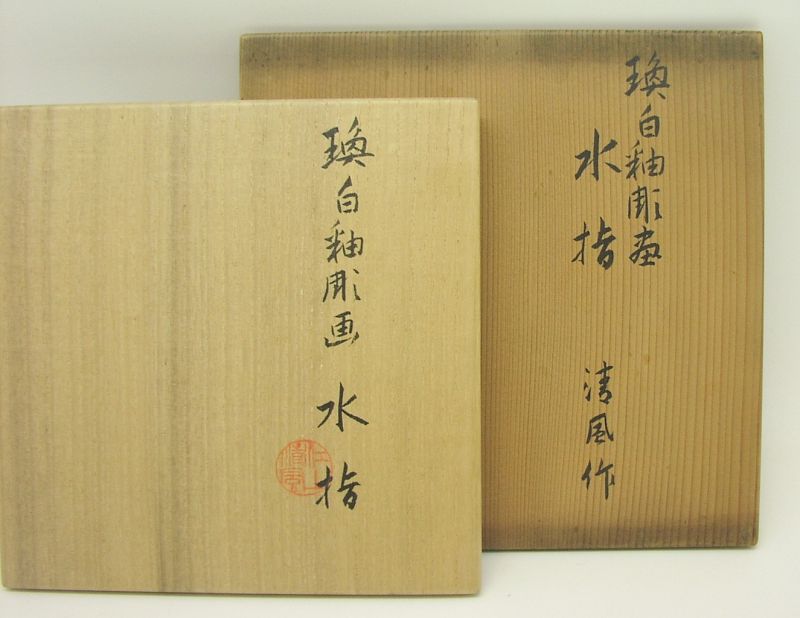 瑍白釉彫画 水指
瑍白釉彫畫
水指
清風作